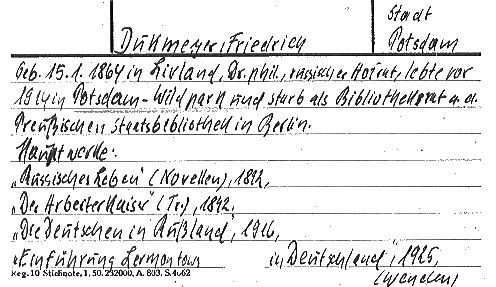 Dukmeyer, Friedrich
Stadt
Potsdam
Geb. 15.1.1864 in Livland, Dr. phil., russischer Hofrat, lebte vor
1914 in Potsdam-Wildpark und starb als Bibliotheksrat a. d.
Preußischen Staatsbibliothek in Berlin.
Hauptwerke:
„Russisches Leben" (Novellen), 1892,
„Der Arbeiterkaiser" (Tr.), 1892.
„Die Deutschen in Rußland", 1916,
„Einführung Lermontows in Deutschland", 1925,
Reg. 10 Stichnote, 1, 50. 232000, A. 803. S. 4062
(wenden)